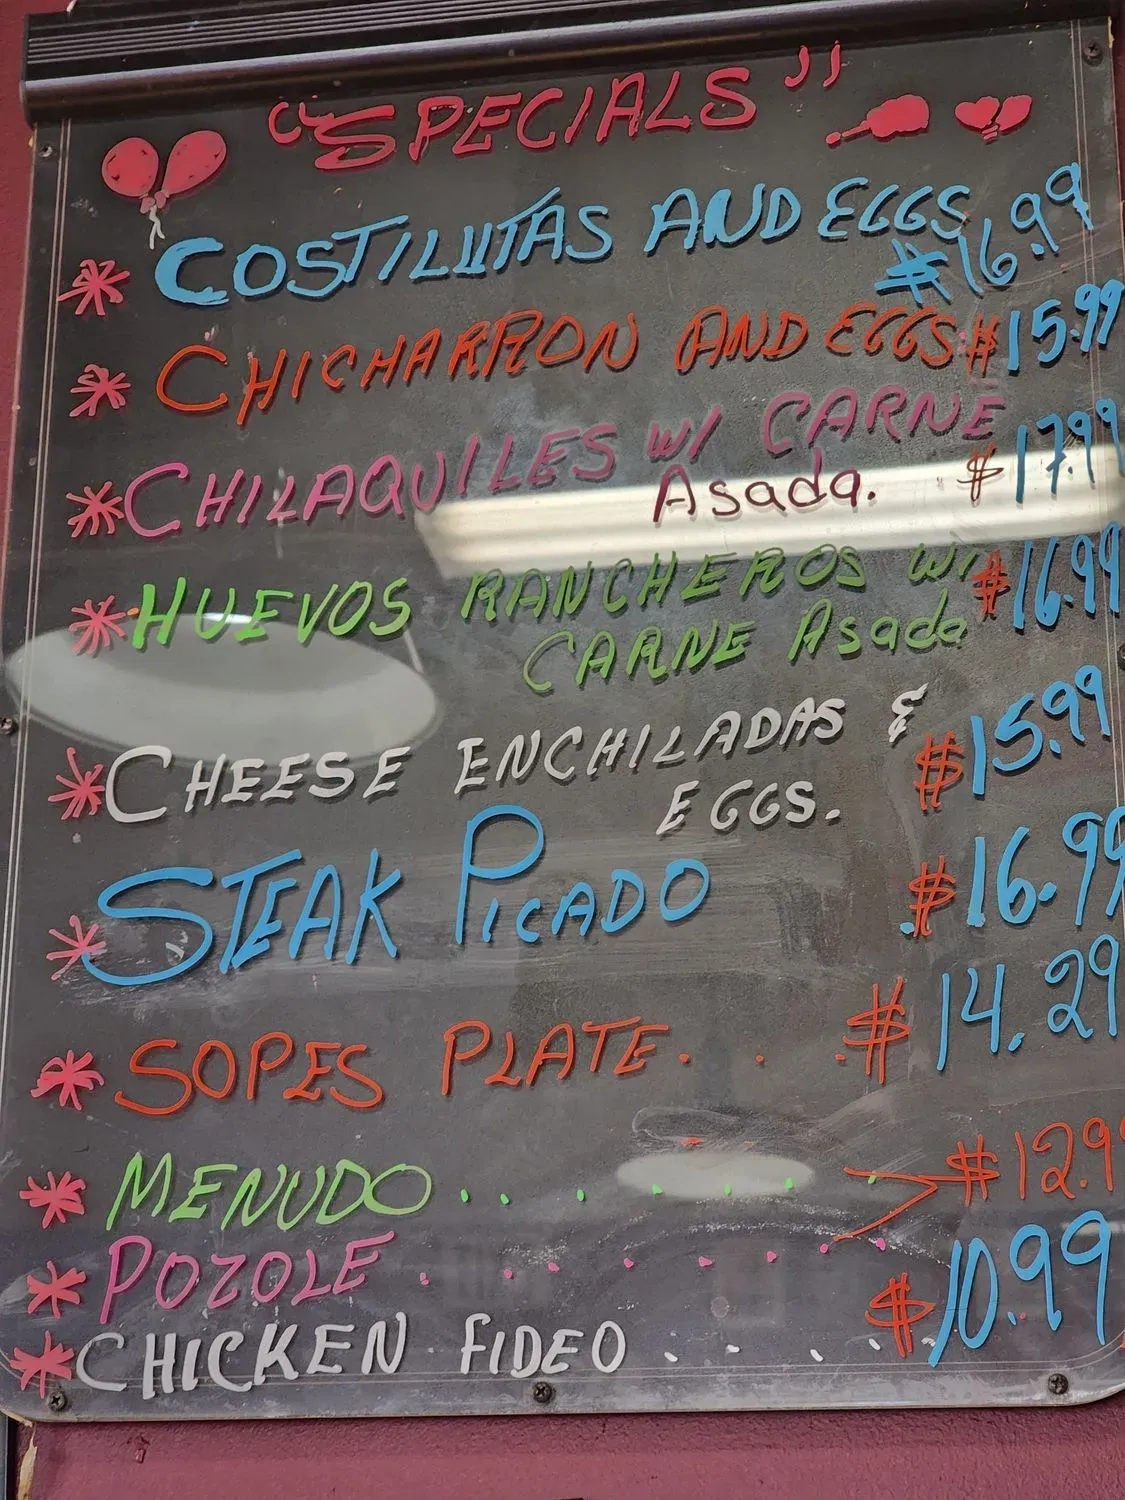 "SPECIALS"
* COSTILLITAS AND EGGS $16.99
* CHICHARRON AND EGGS $15.99
* CHILAQUILES W/ CARNE
Asada. $17.99
* HUEVOS RANCHEROS W/ $16.99
CARNE Asada
* CHEESE ENCHILADAS &
EGGS. $15.99
* STEAK PICADO $16.99
* SOPES PLATE. . . $14.29
* MENUDO . . . . . . . $12.9
* POZOLE . . . . . . . .
* CHICKEN FIDEO . . . . . $10.99